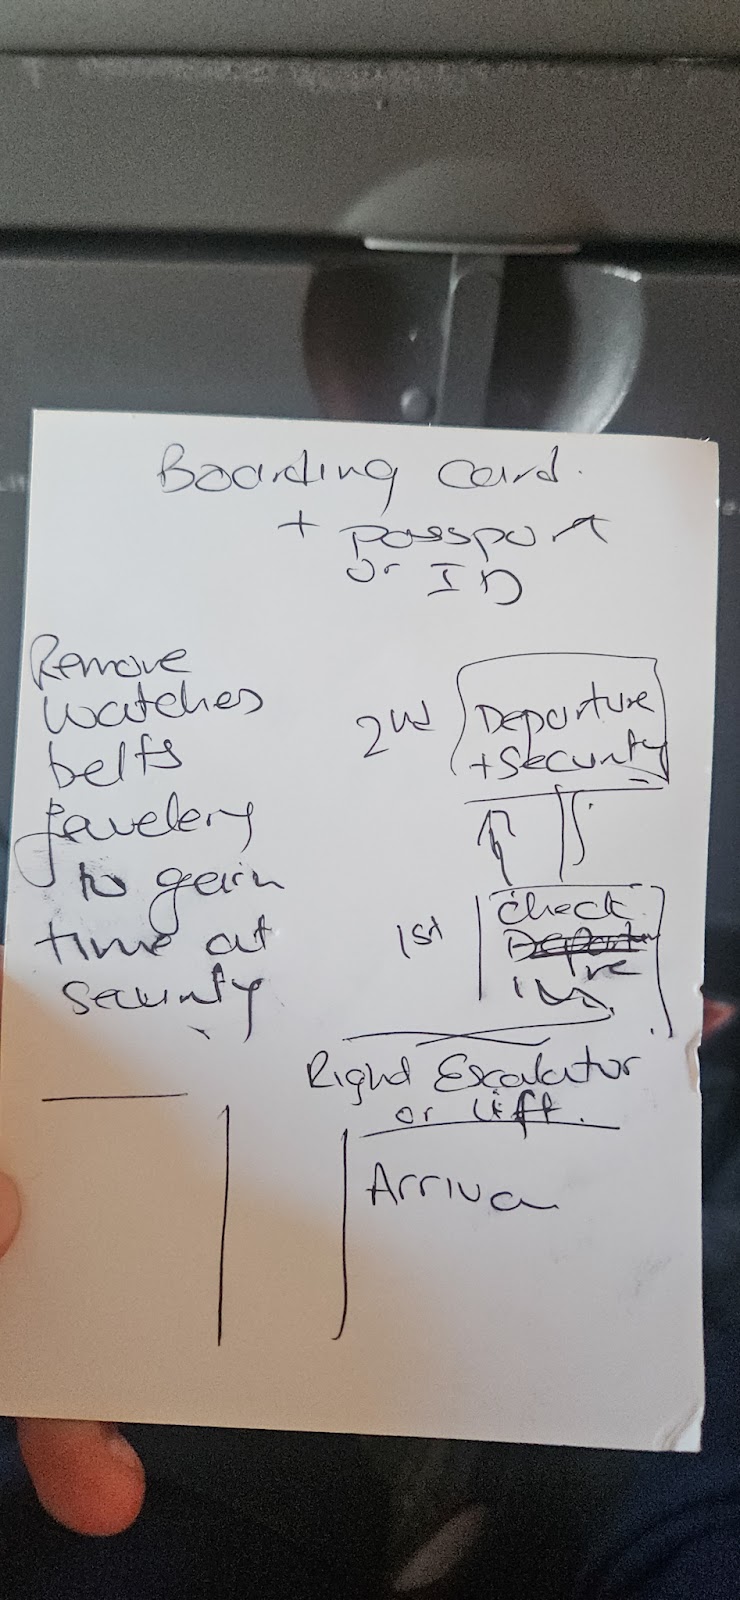 Boarding Card.
+ Passport
or ID
Remove
watches
belts
jewelery
to gain
time at
security
2nd
Departure
+ Security
1st
Check
Departure
in
Right Escalator
or lift.
Arriva